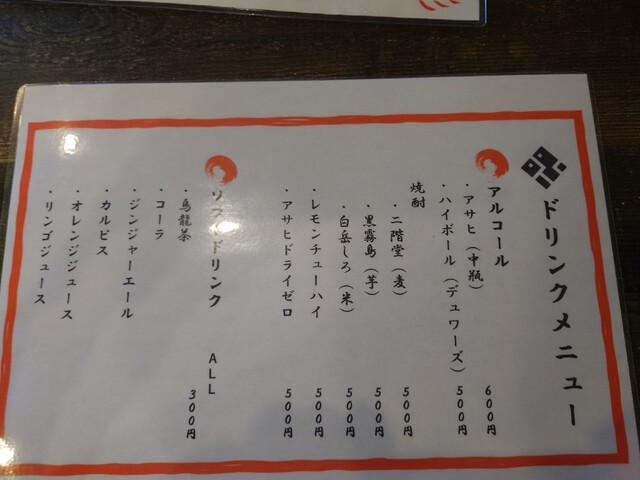 ドリンクメニュー
アルコール
・アサヒ（中瓶） 600円
・ハイボール（デュワーズ） 500円
焼酎
・二階堂（麦） 500円
・黒霧島（芋） 500円
・白岳しろ（米） 500円
・レモンチューハイ 500円
・アサヒドライゼロ 500円
ソフトドリンク ALL
・烏龍茶 300円
・コーラ
・ジンジャーエール
・カルピス
・オレンジジュース
・リンゴジュース